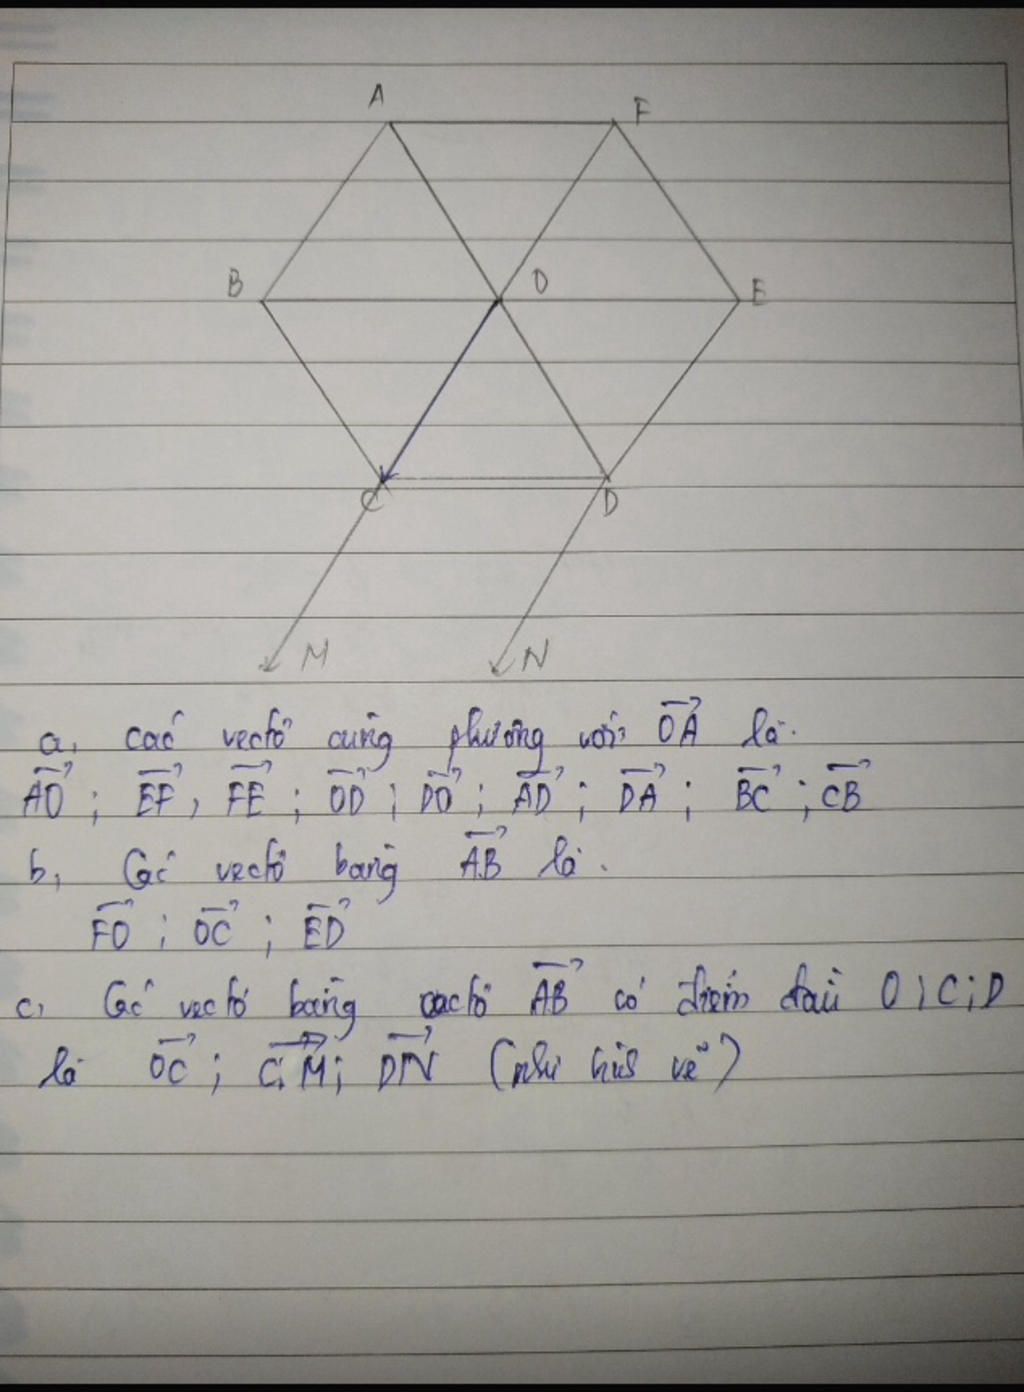 A F
B O E
C D
M N
a, các vectơ cùng phương với OA là.
AO ; EF, FE ; OD ; DO ; AD ; DA ; BC ; CB
b, Các vectơ bằng AB là.
FO ; OC ; ED
c, Các vectơ bằng vectơ AB có điểm đầu O ; C ; D
là OC ; CM ; DN (như hình vẽ)